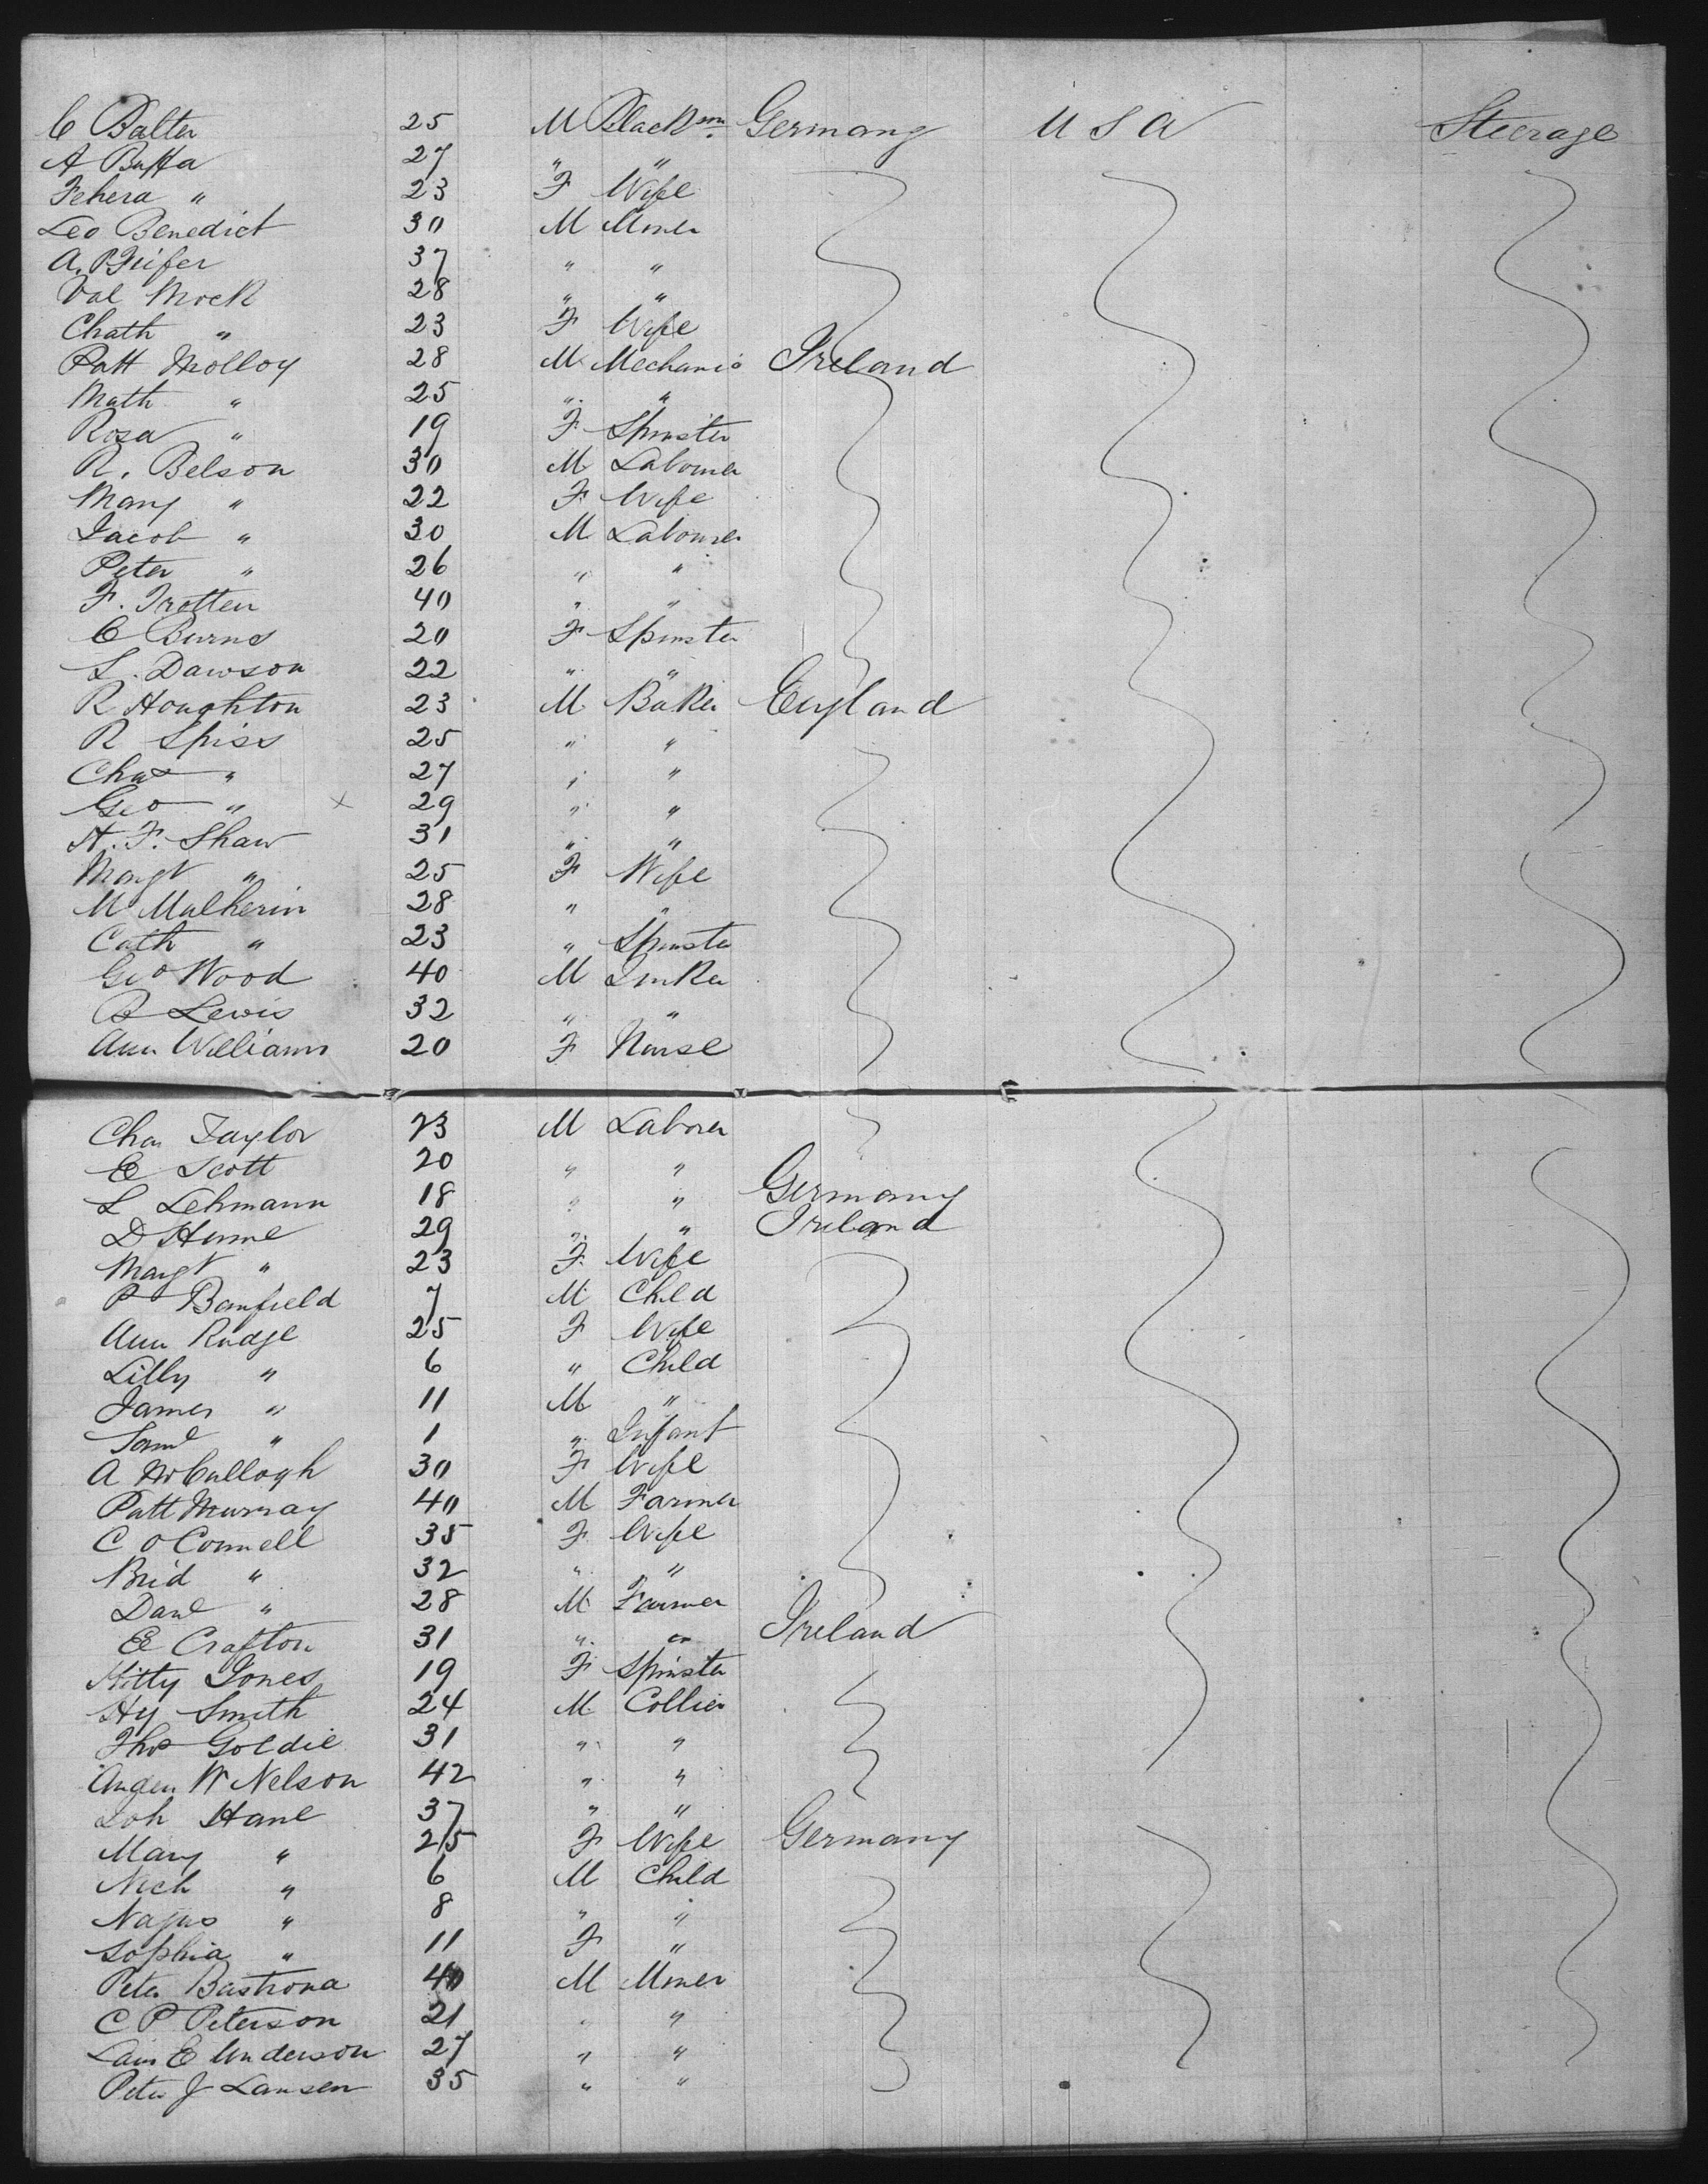 C Balter 25 M Blacksm. Germany U S A Steerage
A Buffa 27 " "
Fehera " 23 F Wife
Leo Benedict 30 M Miner
A. Pfeifer 37 " "
Val Mock 28 " "
Chath " 23 F Wife
Patt Molloy 28 M Mechanic Ireland
Math " 25 " "
Rosa " 19 F Spinster
R. Belson 30 M Labourer
Mary " 22 F Wife
Jacob " 30 M Labourer
Peter " 26 " "
F. Trotten 40 " "
C Burns 20 F Spinster
S. Dawson 22 " "
R Houghton 23 M Baker England
R Spiss 25 " "
Chas " 27 " "
Geo " x 29 " "
H. F. Shaw 31 " "
Margt " 25 F Wife
M Mulherin 28 " "
Cath " 23 " Spinster
Geo Wood 40 M
B Lewis 32 " "
Ann Williams 20 F Nurse
Chas Taylor 23 M Laborer
E Scott 20 " "
L Lehmann 18 " " Germany
D Hume 29 " " Ireland
Margt " 23 F Wife
P Banfield 7 M Child
Ann Rudge 25 F Wife
Lilly " 6 " Child
James " 11 M "
Saml " 1 " Infant
A McCullogh 30 F Wife
Patt Murray 40 M Farmer
C O Connell 35 F Wife
Brid " 32 " "
Danl " 28 M Farmer
E Crafton 31 " " Ireland
Kitty Jones 19 F Spinster
Hy Smith 24 M Collier
Thos Goldie 31 " "
W Nelson 42 " "
Joh Hane 37 " "
Mary " 25 F Wife Germany
Nich " 6 M Child
" 8 " "
Sophia " 11 F "
Peter Bastrona 40 M Miner
C P Peterson 21 " "
E Anderson 27 " "
Peter J Lansen 35 " "